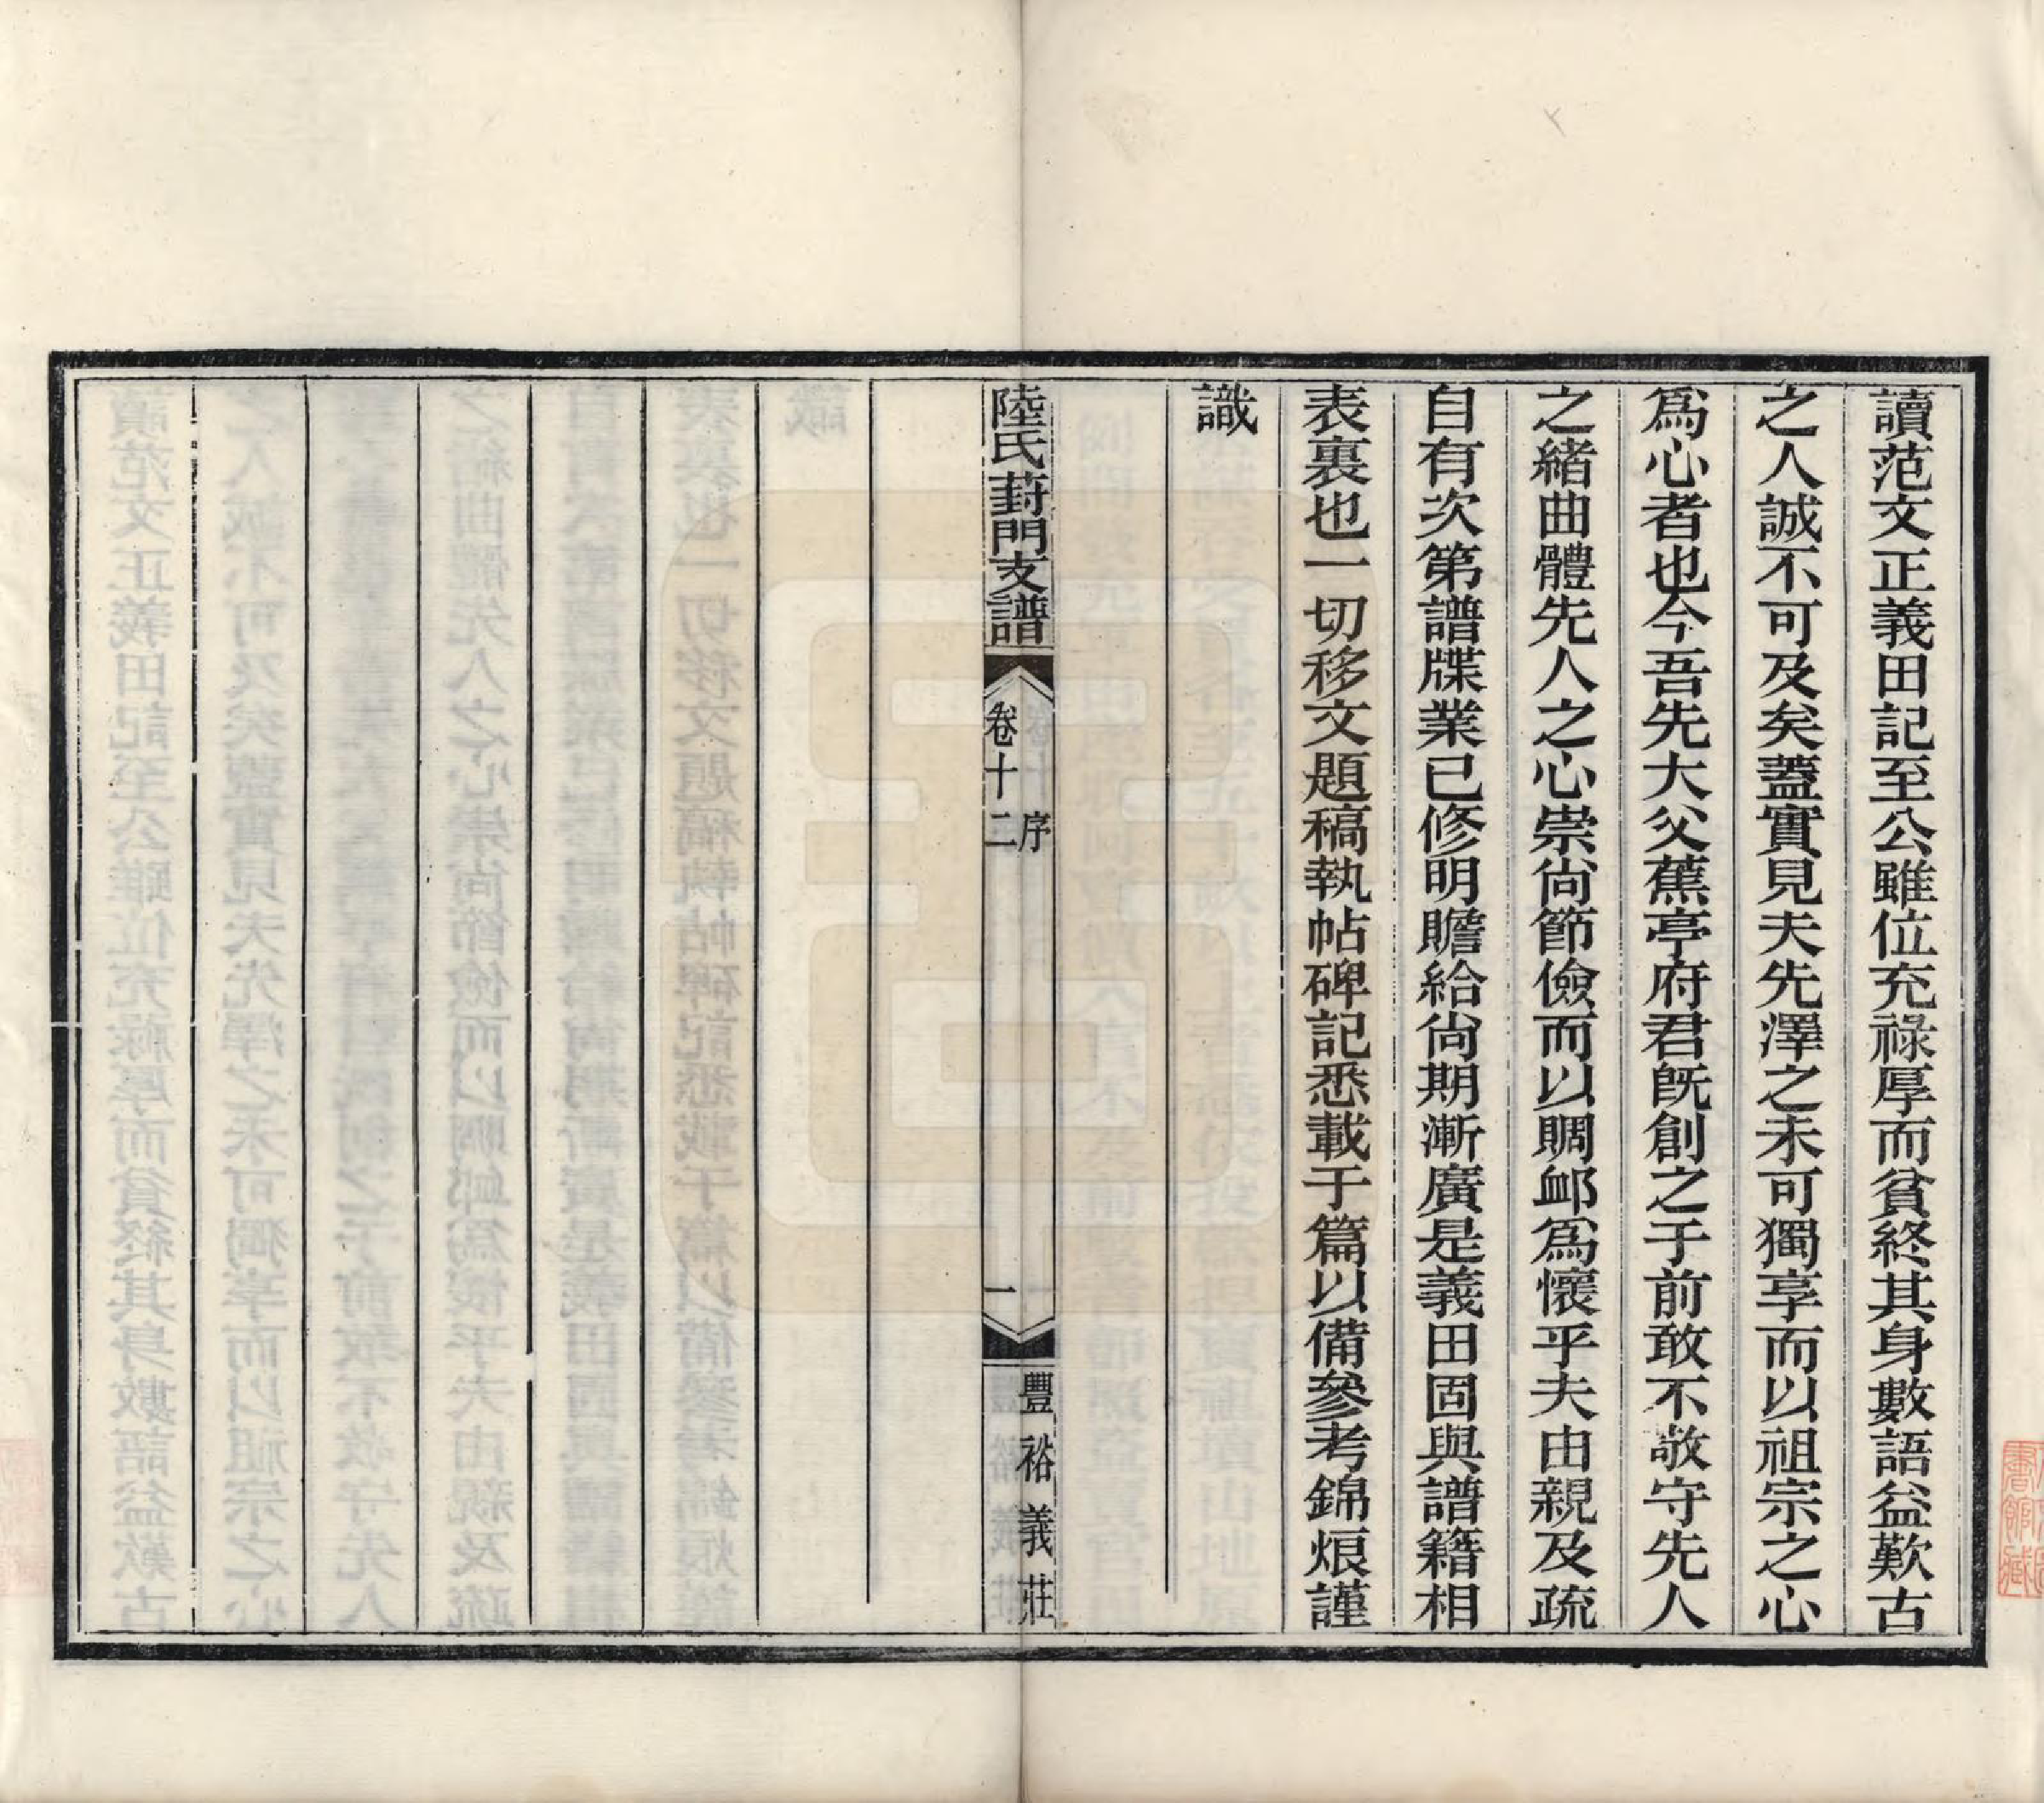 讀范文正義田記至公雖位充祿厚而貧終其身數語益歎古
之人誠不可及矣蓋實見夫先澤之未可獨享而以祖宗之心
爲心者也今吾先大父蕉亭府君旣創之于前敢不敬守先人
之緒曲體先人之心崇尙節儉而以賙卹爲懷乎夫由親及疏
自有次第譜牒業已修明贍給尙期漸廣是義田固與譜籍相
表裏也一切移文題稿執帖碑記悉載于篇以備參考錦烺謹
識
陸氏葑門支譜
卷十二
序
一
豐裕義莊